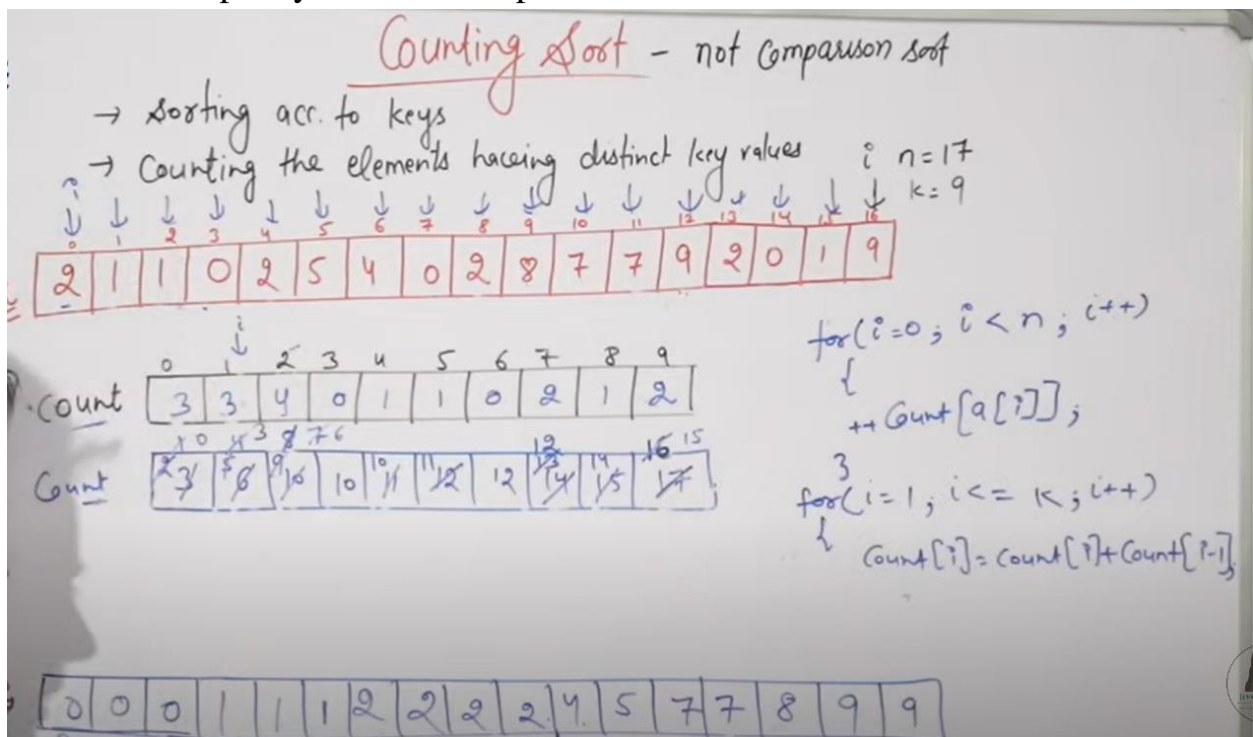 Counting Sort - not Comparison sort
→ Sorting acc. to keys
→ Counting the elements haceing distinct key values
i n=17
k=9
i
0 1 2 3 4 5 6 7 8 9 10 11 12 13 14 15 16
2 1 1 0 2 5 4 0 2 8 7 7 9 2 0 1 9
i
0 1 2 3 4 5 6 7 8 9
Count 3 3 4 0 1 1 0 2 1 2
1 0 4 3 8 7 6 12 16 15
Count 2 3 5 6 9 10 10 10 11 11 12 12 13 14 14 15 17
for(i=0; i<n; i++)
{
++Count[a[i]];
}
for(i=1; i<=k; i++)
{
Count[i]=Count[i]+Count[i-1];
0 0 0 1 1 1 2 2 2 2 4 5 7 7 8 9 9